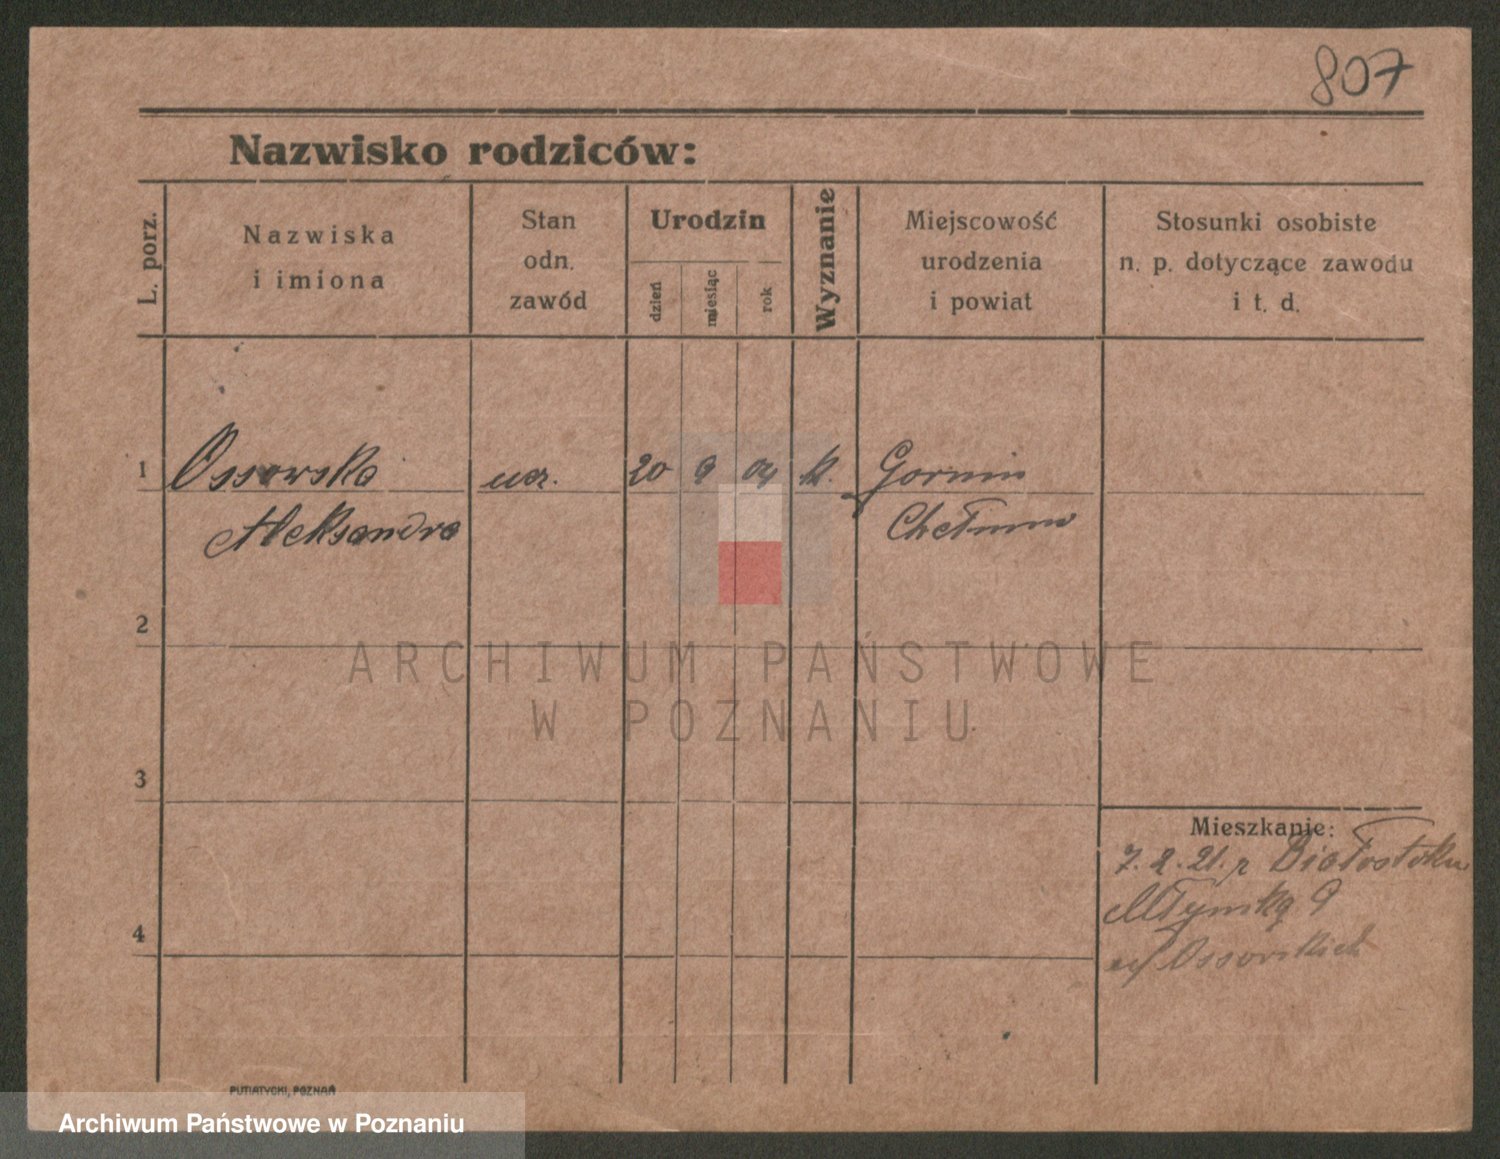 807
Nazwisko rodziców:
L. porz.
Nazwiska
i imiona
Stan
odn.
zawód
Urodzin
dzień
miesiąc
rok
Wyznanie
Miejscowość
urodzenia
i powiat
Stosunki osobiste
n. p. dotyczące zawodu
i t. d.
1
Ossowska
ucz.
20 9 04 k.
Aleksandra
Chełmno
2
ARCHIWUM PAŃSTWOWE
W POZNANIU
3
Mieszkanie:
7. 2. 21. z Białostoku
Młyńską 9
Ossowskich
4
PUTIATYCKI, POZNAŃ
Archiwum Państwowe w Poznaniu